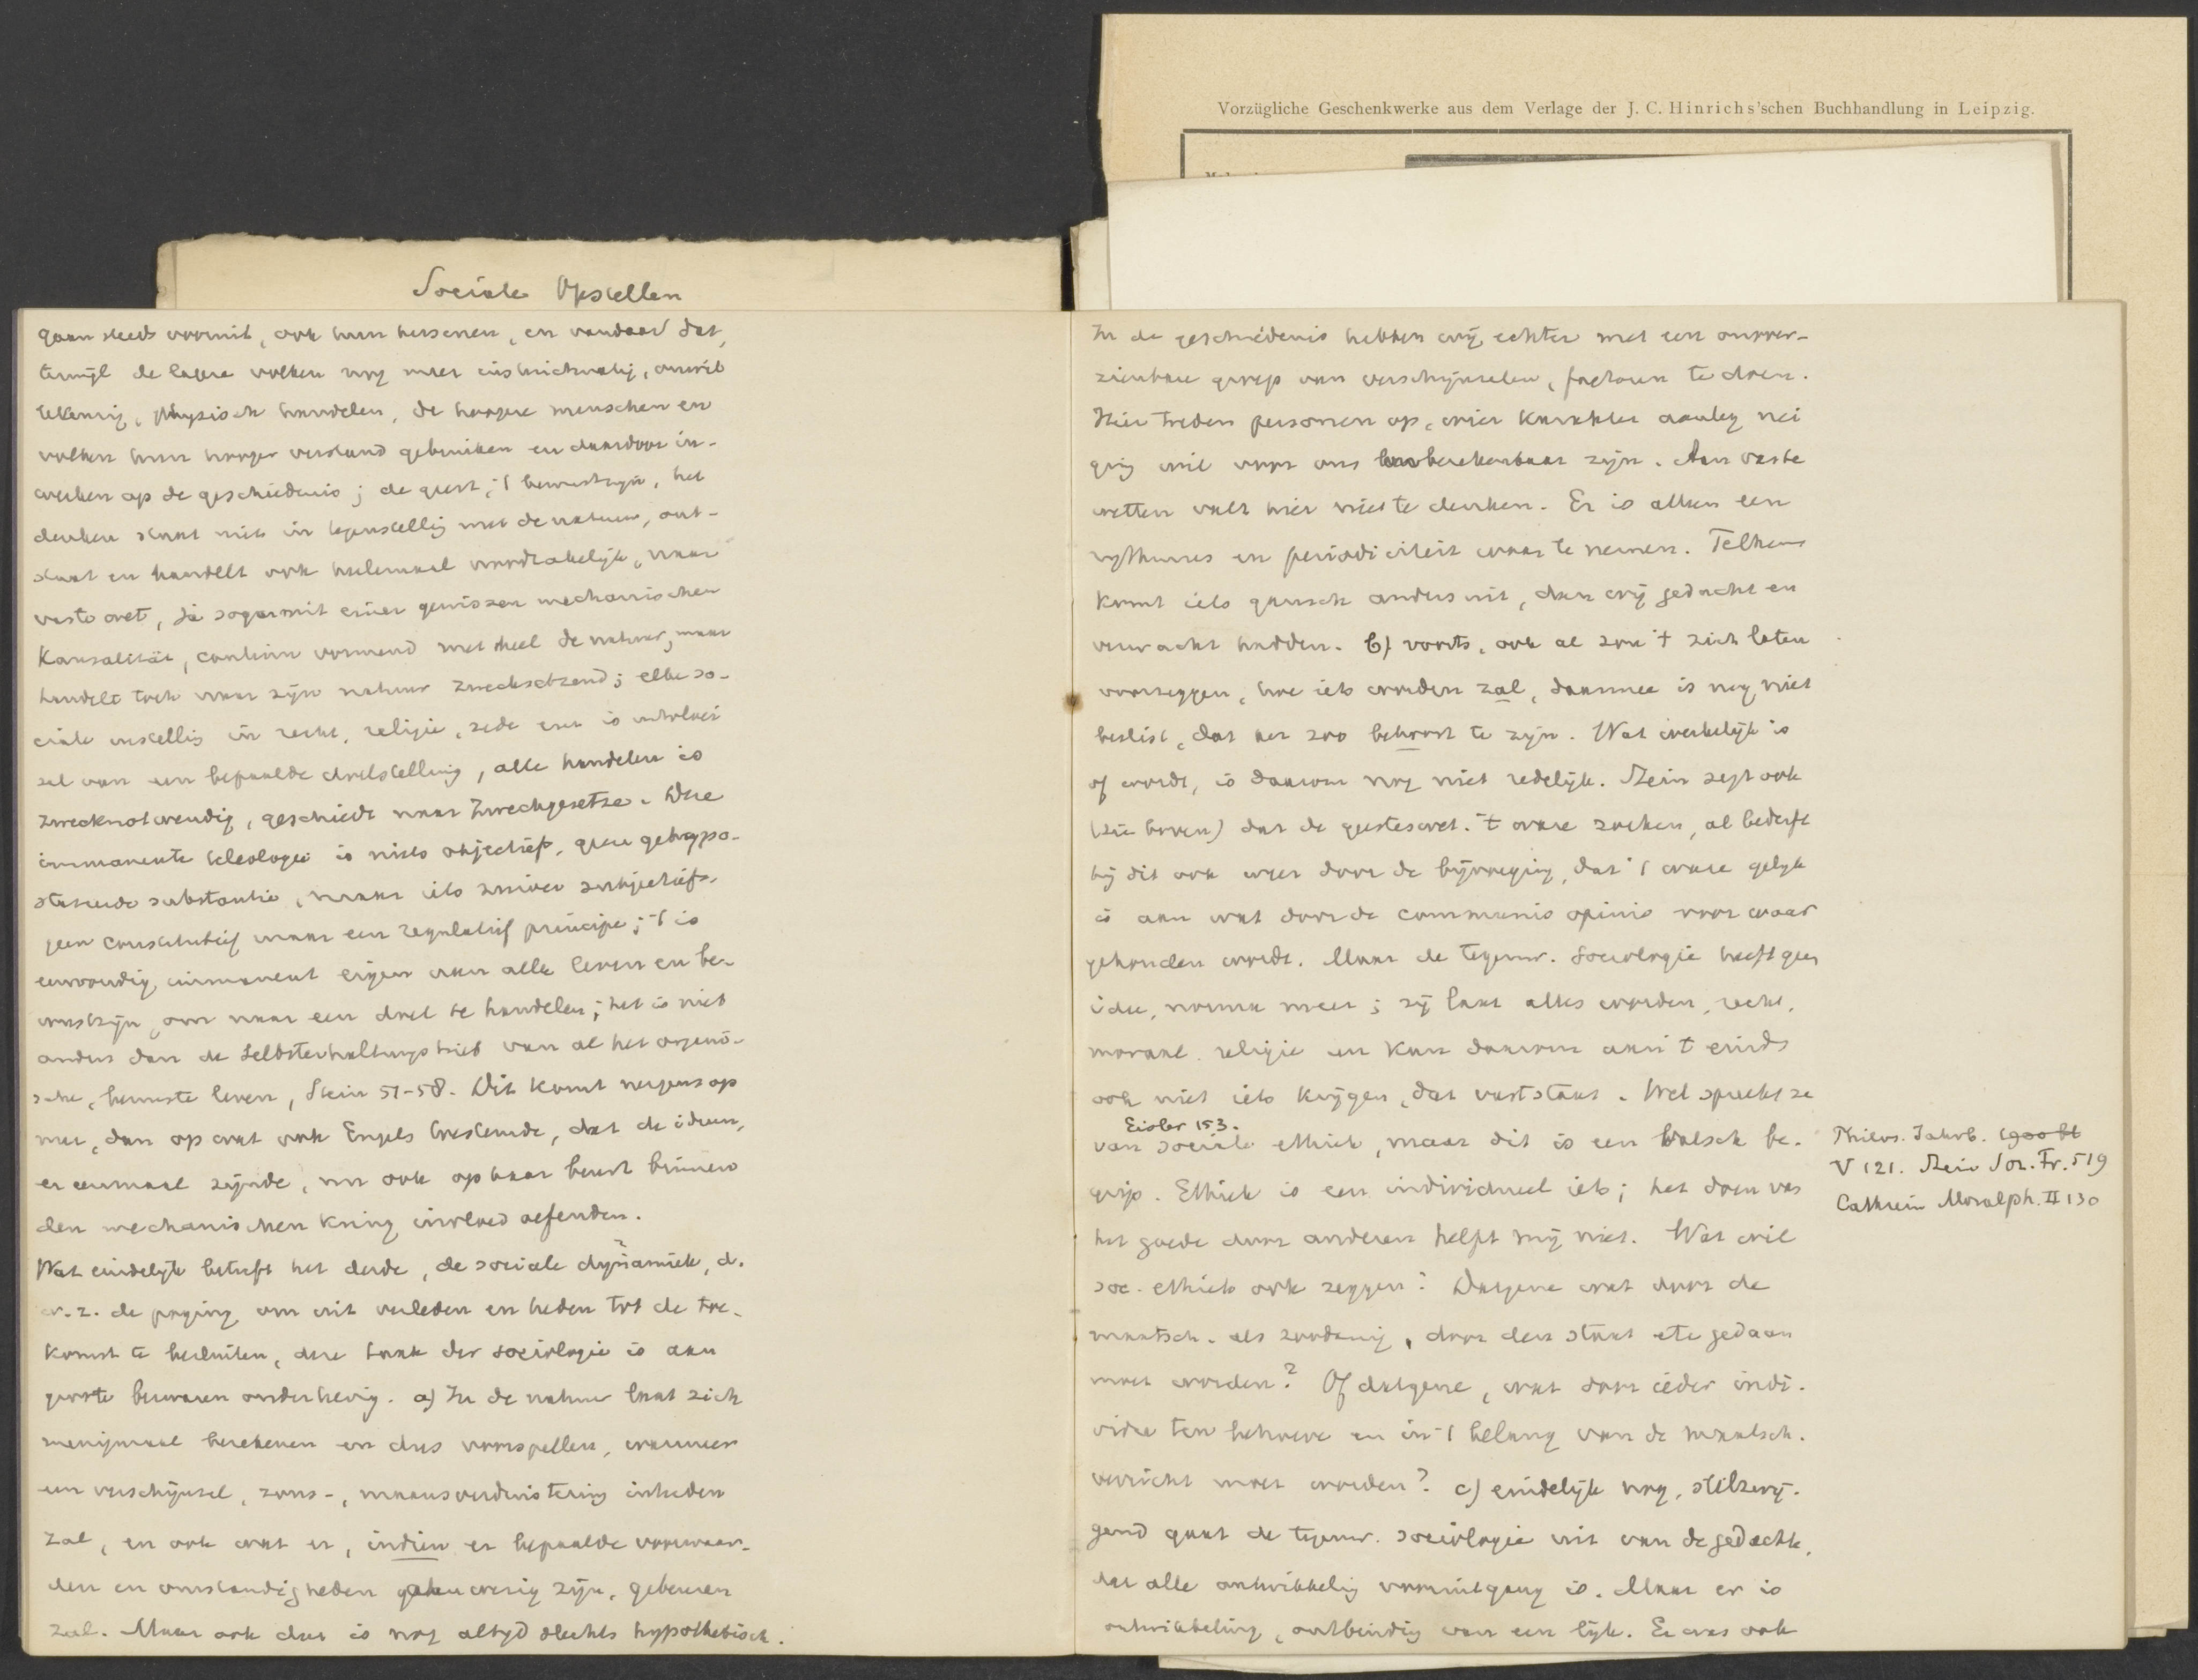 Vorzügliche Geschenkwerke aus dem Verlage der J. C. Hinrichs'schen Buchhandlung in Leipzig.
Sociale Opstellen
gaan steeds vooruit, ook hun hersenen, en vandaar dat,
terwijl de lagere volken nog meer instinctmatig, onwil
lekeurig, physisch handelen, de hoogere menschen en
volken hun hooger verstand gebruiken en daardoor in-
werken op de geschiedenis; de geest, 't bewustzijn, het
denken staat niet in tegenstelling met de natuur, ont-
staat en handelt ook helemaal noodzakelijk, naar
vaste wet, ja sogar mit einer gewissen mechanischen
Kausalität, continu vormend met heel de natuur, maar
handelt toch naar zijn natuur zwecksetzend; elke so-
ciale instelling in recht, religie, zede enz is uitvloei
sel van een bepaalde doelstelling, alle handelen is
zwecknotwendig, geschiedt naar Zweckgesetze. Deze
immanente teleologie is niets objectiefs, geen gehypo-
staseerde substantie, maar iets zuiver subjectiefs,
geen constitutief maar een regulatief principe; 't is
eenvoudig immanent eigen aan alle leven en be-
wustzijn, om naar een doel te handelen; het is niet
anders dan de Selbsterhaltungstrieb van al het organi-
sche, bewuste leven, Stein 51-58. Dit komt nergens op
neer, dan op wat ook Engels leeraarde, dat de ideeen,
er eenmaal zijnde, nu ook op haar beurt binnen
den mechanischen kring invloed oefenden.
Wat eindelijk betreft het derde, de sociale dynamiek, d.
w. z. de poging om uit verleden en heden tot de toe-
komst te besluiten, deze taak der sociologie is aan
groote bezwaren onderhevig. a) In de natuur laat zich
menigmaal berekenen en dus voorspellen, wanneer
een verschijnsel, zons-, maansverduistering intreden
zal, en ook wat er, indien er bepaalde voorwaar-
den en omstandigheden aanwezig zijn, gebeuren
zal. Maar ook dat is nog altijd slechts hypothetisch.
In de geschiedenis hebben wij echter met een onover-
zienbare groep van verschijnselen, factoren te doen.
Hier treden personen op, wier karakter aanleg nei
ging wil voor ons onberekenbaar zijn. Aan vaste
wetten valt hier niet te denken. Er is alleen een
rythmus en periodiciteit waar te nemen. Telkens
komt iets gansch anders uit, dan wij gedacht en
verwacht hadden. b) voorts, ook al zou 't zich laten
voorzeggen, hoe iets worden zal, daarmee is nog niet
beslist, dat het zoo behoort te zijn. Wat werkelijk is
of wordt, is daarom nog niet redelijk. Stein zegt ook
(zie boven) dat de geesteswet. 't ware zoeken, al bederft
hij dit ook weer door de bijvoeging, dat 't ware gelijk
is aan wat door de communis opinio voor waar
gehouden wordt. Maar de tegenw. sociologie heeft geen
idee, norma meer; zij laat alles worden, recht,
moraal, religie en kan daarom aan 't eind
ook niet iets krijgen, dat vaststaat. Wel spreekt ze
Eisler 153.
van sociale ethiek, maar dit is een valsch be-
grip. Ethiek is een individueel iets; het doen van
het goede door anderen helpt mij niet. Wat wil
soc. ethiek ook zeggen? Datgene wat door de
maatsch. als zoodanig, door den staat etc gedaan
moet worden? Of datgene, wat door ieder indi-
vidu ten behoeve en in 't belang van de maatsch.
verricht moet worden? c) eindelijk nog, stilzwij-
gend gaat de tegenw. sociologie uit van de gedachte,
dat alle ontwikkeling vooruitgang is. Maar er is
ontwikkeling, ontbinding van een lijk. Er was ook
Philos. Jahrb. 1900 bl
V 121. Stein Soz. Fr. 519
Cathrein Moralph. II 130